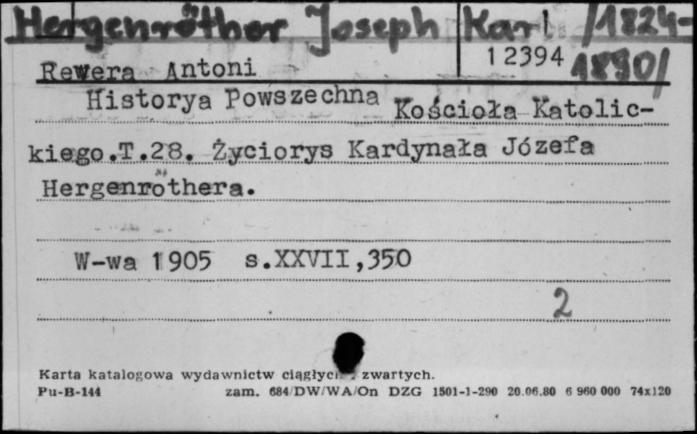 Hergenröther Joseph Karl /1824-
1890/
12394
Rewera Antoni
Historya Powszechna Kościoła Katolic-
kiego.T.28. Życiorys Kardynała Józefa
Hergenröthera.
W-wa 1905 s.XXVII,350
2
Karta katalogowa wydawnictw ciągłych zwartych.
Pu-B-144 zam. 684/DW/WA/On DZG 1501-1-290 20.06.80 6 960 000 74x120